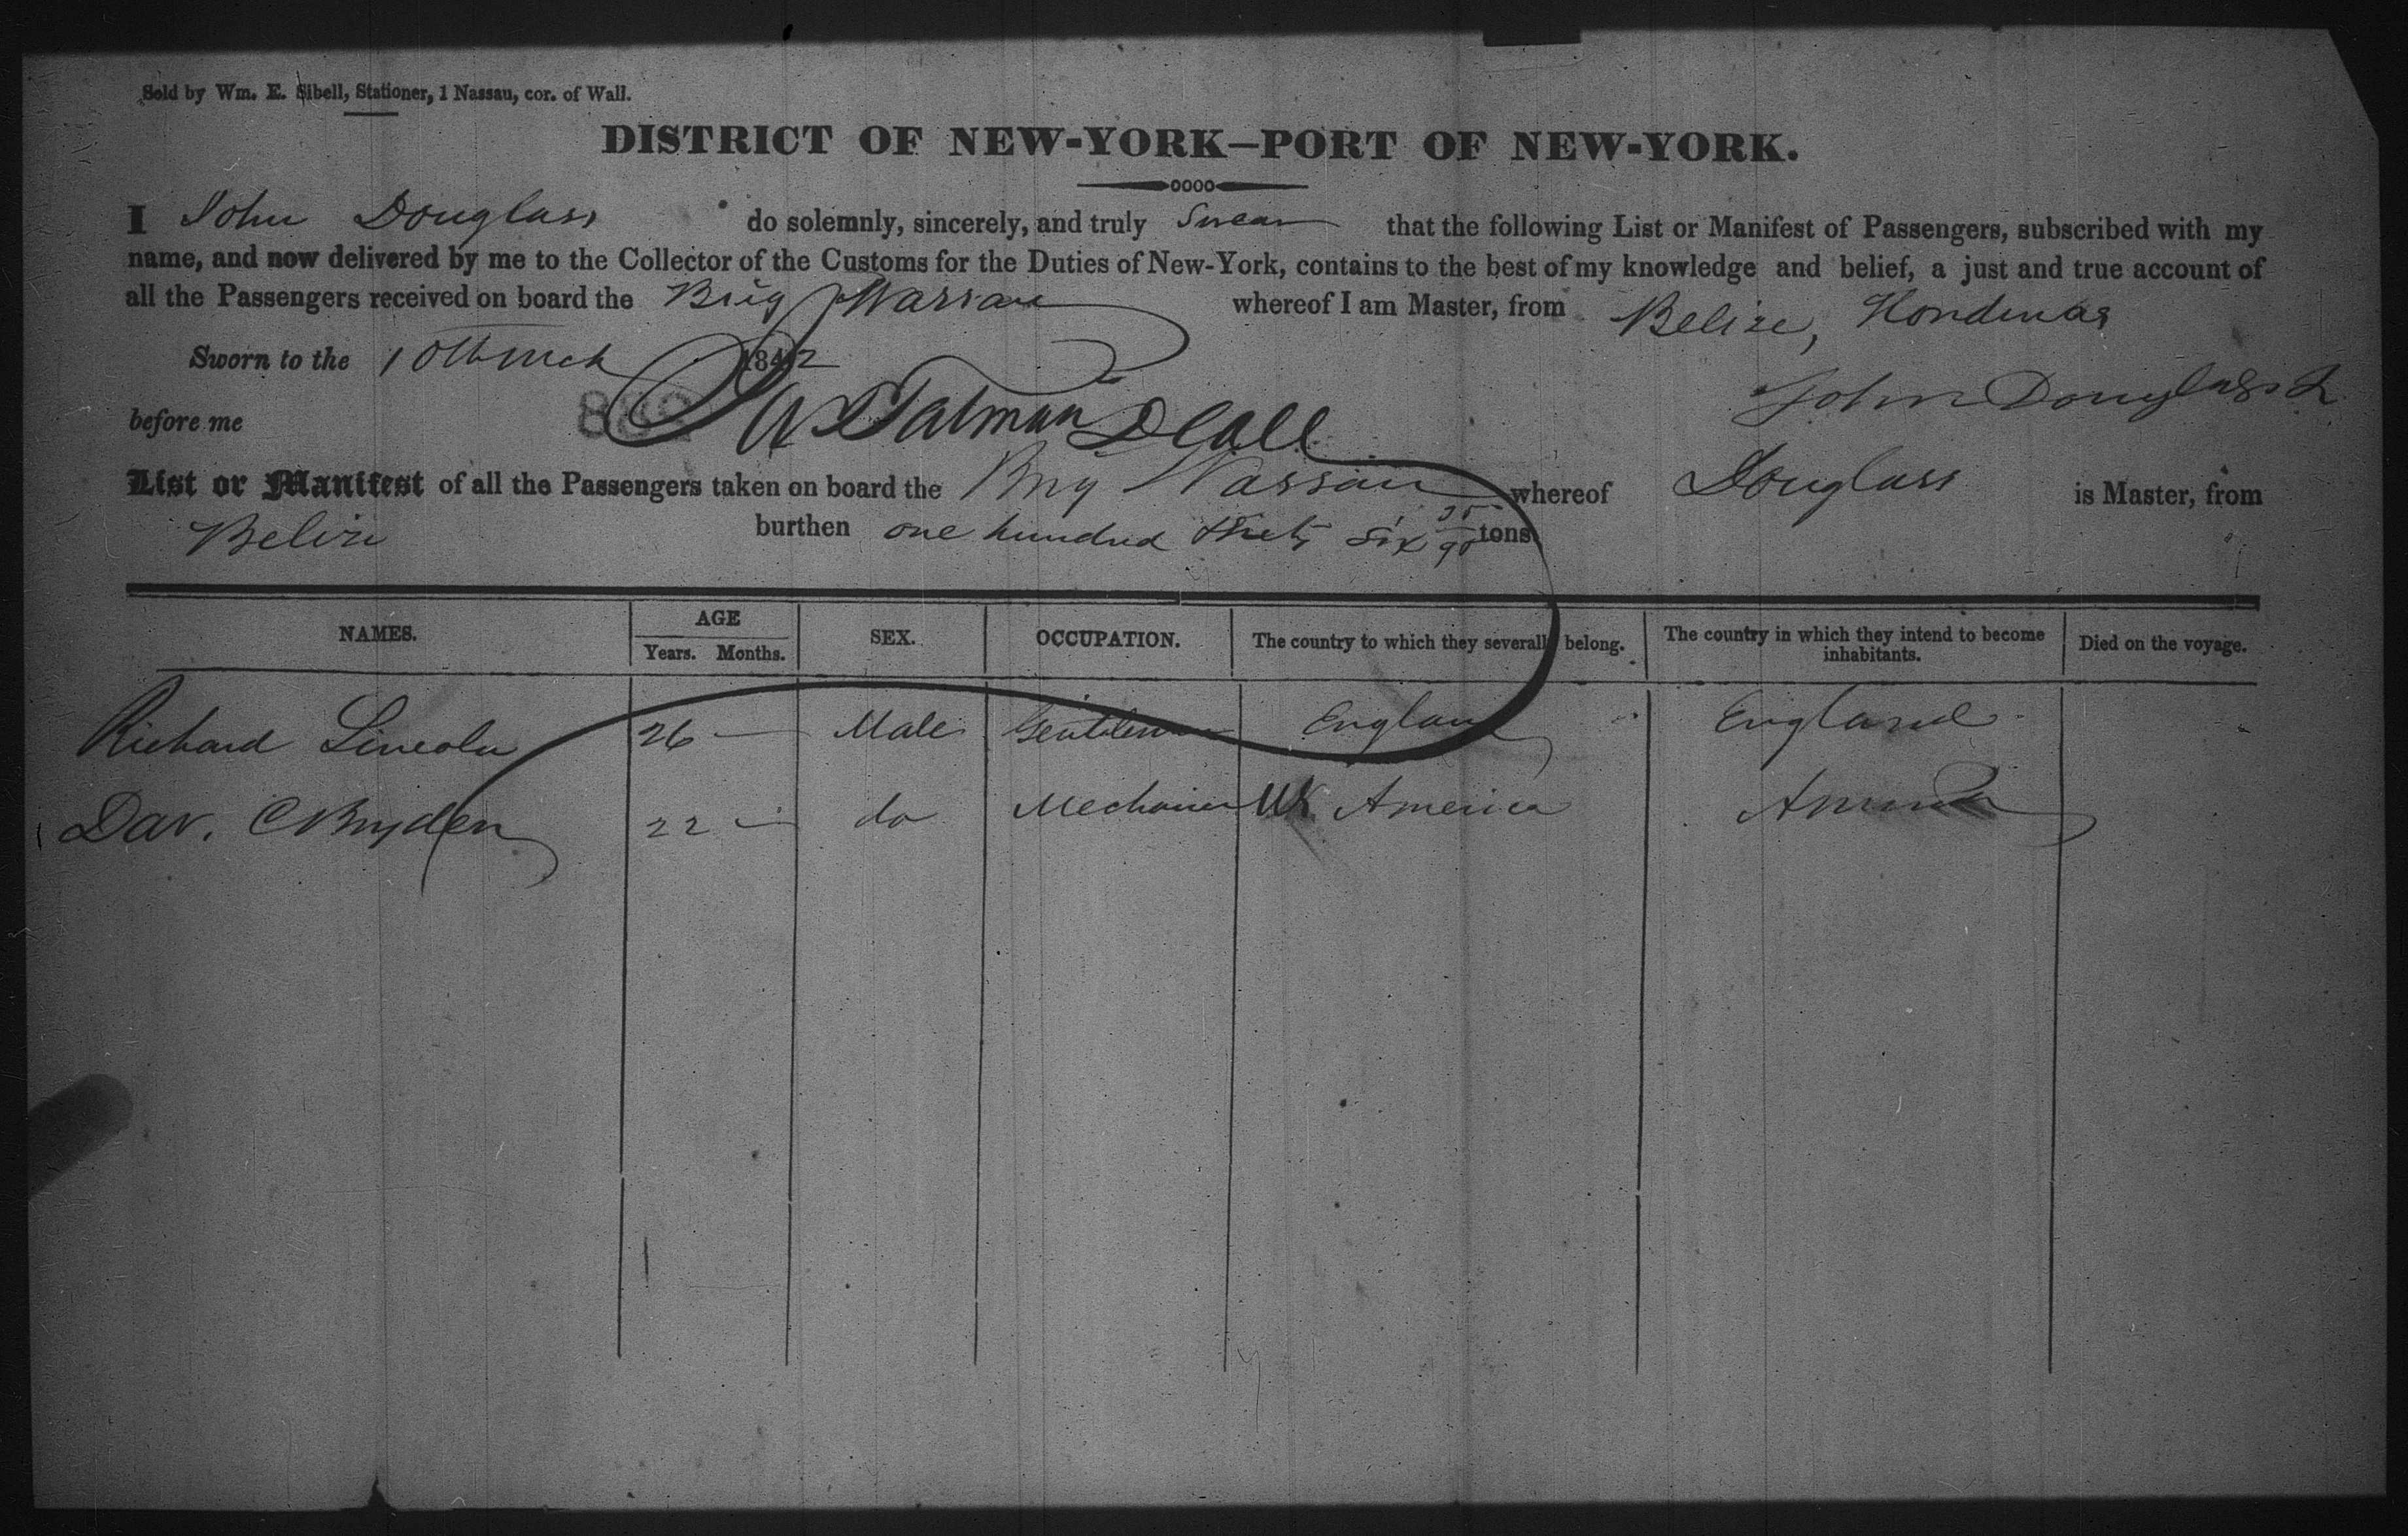 Sold by Wm. E. Sibell, Stationer, 1 Nassau, cor. of Wall.
DISTRICT OF NEW-YORK—PORT OF NEW-YORK.
I John Douglass do solemnly, sincerely, and truly Swear that the following List or Manifest of Passengers, subscribed with my
name, and now delivered by me to the Collector of the Customs for the Duties of New-York, contains to the best of my knowledge and belief, a just and true account of
all the Passengers received on board the Brig Nassau whereof I am Master, from Belize, Honduras
Sworn to the 10th 1842
John Douglass
before me Talman D Coll
List or Manifest of all the Passengers taken on board the Brig Nassau whereof Douglass is Master, from
Belize burthen one hundred thirty six tons
NAMES. AGE Years. Months. SEX. OCCUPATION. The country to which they severally belong. The country in which they intend to become inhabitants. Died on the voyage.
Richard Lincoln 26 — Male Gentleman England England
Dav. C Bryden 22 — do Mechanic America America